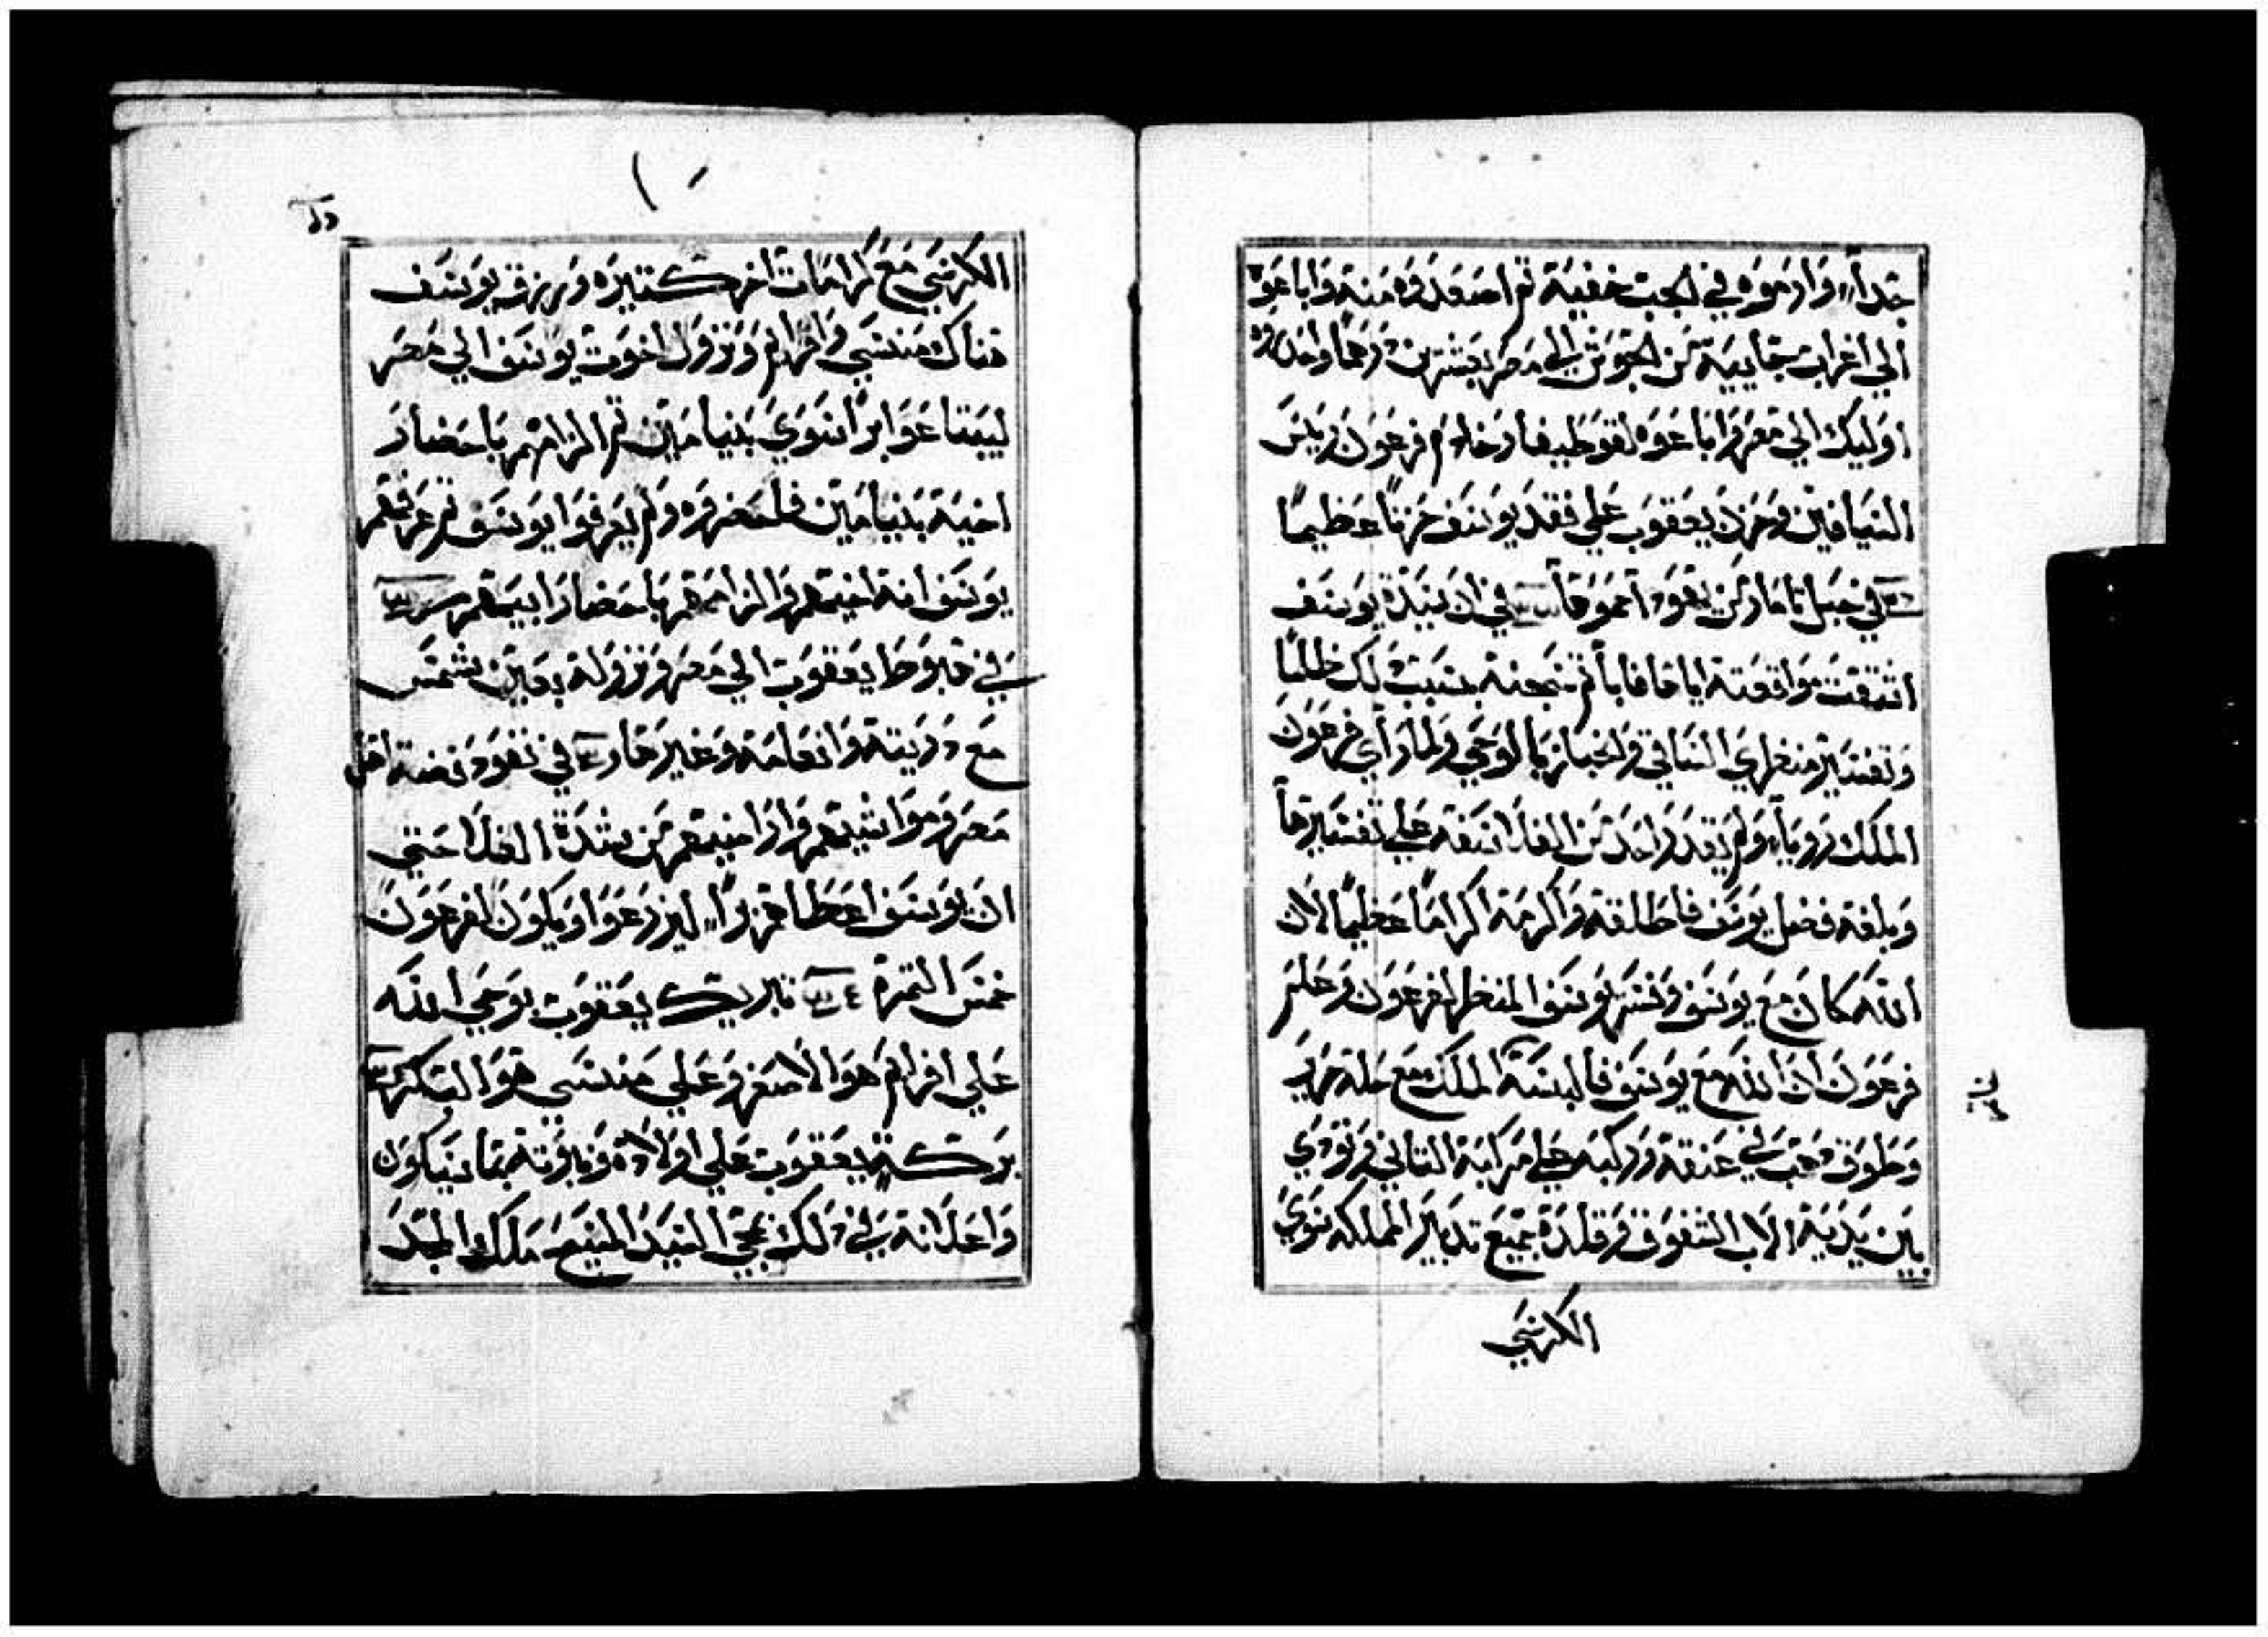 جداً وارموه في الجب خفية ثم اصعدوه منه واباعوه
الي اعراب جاييه من الجوش الي مصر بعشرين درهما واخدوه
اوليك الي مصر واباعوه لقوطيفار خادم فرعون ريس
السيافين وحزن يعقوب علي فقد يوسف حزناً عظيماً
في خبل تامار من يهودا في ان سيدة يوسف
اشتهت مواقعته اياها فابا ثم سجنته بسبب دلك ظلماً
وتفسير منظري الساقي والخباز بالوحي ولما راي فرعون
الملك روياً ولم يقدر واحد من الفلاسفه علي تفسيرها
وبلغه فضل يوسف فاطلقه واكرمه اكراماً عظيماً لان
الله كان مع يوسف وفسر يوسف المنظر لفرعون وعلم
فرعون ان الله مع يوسف فالبسه الملك مع حلة حرير
وطوق دهب في عنقه وركبه علي مركبه التاني ونودي
بين يديه الاب الشفوق وقلده جميع تدبير المملكه سوي
الكرسي
الكرسي مع كرامات اخر كتيره ورزق يوسف
هناك منسي وافرايم ونزول اخوت يوسف الي مصر
ليبتاعوا براً سوي بنيامين ثم الزامهم باحضار
اخيه بنيامين فلحضروه ولم يعرفوا يوسف ثم عرفهم
يوسف انه اخيهم والزامهم باحضار ابيهم
في هبوط يعقوب الي مصر ونزوله بعين شمس
مع دريته وانعامه وغير هادا في نفود فضة اهل
مصر ومواشيهم واراضيهم من شدة الغلا حتي
ان يوسف اعطاهم بزراً ليزرعوا ويكون لفرعون
خمس التمرة تبريك يعقوب بوحي الله
علي افرايم هو الاصغر وعلي منسي هو البكر
بركة يعقوب علي اولاده ونبوته بما سيكون
واعلانه في دلك مجي السيد المسيح ملك المجد